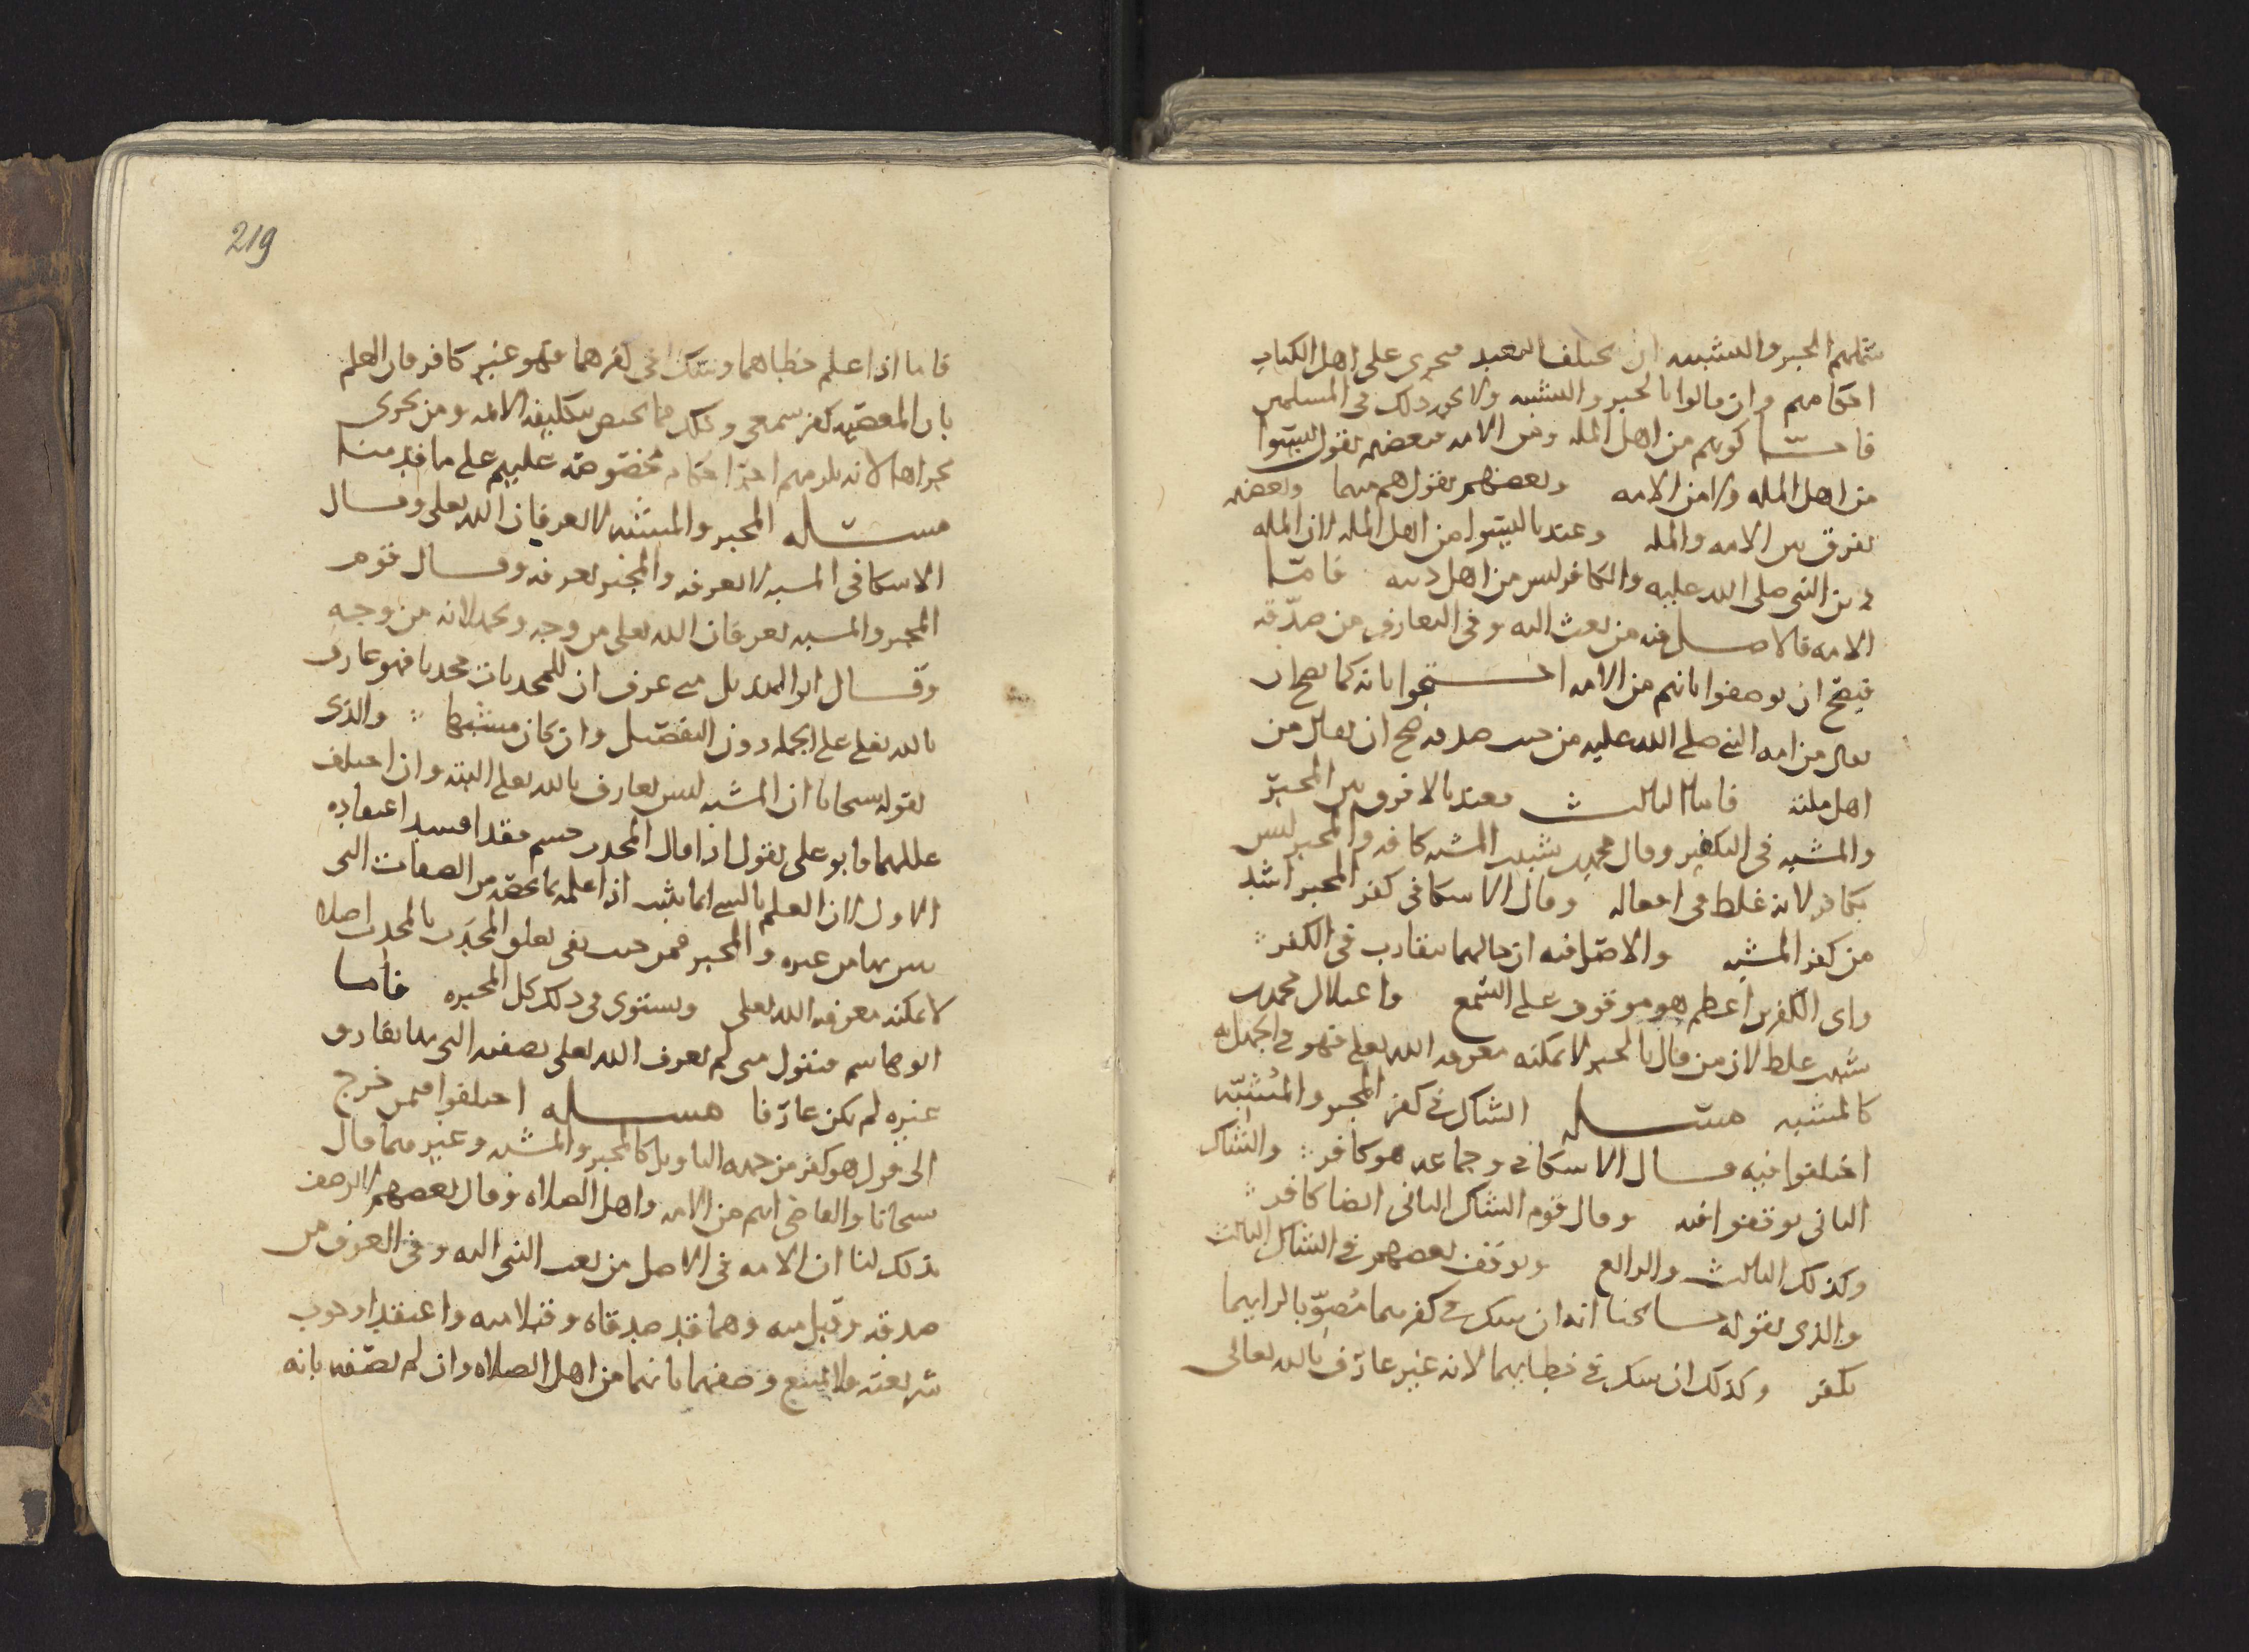 شملهم الجبر والتشبيه ان يختلف التعبد فيجرى على اهل الكتاب
احكامهم وان قالوا بالجبر والتشبيه ولا يجوز ذلك في المسلمين
فامـا كونهم من اهل الملة ومن الامه فبعضهم يقول ليسوا
من اهل المله ولا من الامه وبعضهم يقول هم منهما وبعضهم
يفرق بين الامه والمله وعندنا ليسوا من اهل المله لان المله
دين النبي صلى الله عليه والكافر ليس من اهل دينه فامّا
الامه فالاصل فيه من بعث اليه وفي التعارف من صدّقه
فيصح ان يوصفوا بانهم من الامه احـتجوا بانه كما يصح ان
يقال من امه النبي صلى الله عليه من حيث صدقه صح ان يقال من
اهل ملته فاما الثالث فعندنا لا فرق بين المجبّر
والمشبه في التكفير وقال محمد بن شبيب المشبه كافر والمجبر ليس
بكافر لانه غلط في افعاله وقال الاسكافي كفر المجبر اشد
من كفر المشبه والاصل فيه ان حالهما يتقارب في الكفر
واى الكفرين اعظم هو موقوف على السمع واعتلال محمد بن
شبيب غلط لان من قال بالجبر لا يمكنه معرفه الله تعلى فهو في الجهل به
كالمشبه مسـله الشاك في كفر المجبر والمُشبّه
اختلفوا فيه فقـال الاسكافي وجماعه هو كافر والشاك
الثاني توقفوا فيه وقال قوم الشاك الثاني ايضا كافر
وكذلك الثالث والرابع وتوقف بعضهم في الشاك الثالث
والذى يقوله مشـايخنا انه ان شك في كفرهما مُصوّبا لرايهما
يكفر وكذلك ان شك في خطايهما لانه غير عارف بالله تعالى
219
فاما اذا علم خطاهما وشك في كفرهما فهو غير كافر فان العلم
بان المعصيه كفر سمعي وذلك مما يختص بتكليفه الائمه ومن يجرى
مجراها لانه يلزمهم اجرا احكام مخصوصه عليهم على ما قدمنـا
مسـله المجبر والمشبه لا يعرفان الله تعلى وقـال
الاسكافى المشبه لا يعرفه والمجبر يعرفه وقـال قوم
المجبر والمشبه يعرفان الله تعلى من وجه ويجهلانه من وجه
وقـال ابو الهذيل من عرف ان للمحدثات محدثا فهو عارف
بالله تعلى على الجمله دون التفصيل وان كان مشبها والذى
يقوله مشايخنا ان المشبه ليس بعارف بالله تعلى البته وان اختلف
عللهما فابو على يقول اذا قال المحدث جسم فقد افسد اعتقاده
الاول لان العلم بالشي انما يثبت اذا علمه بما يخصه من الصفات التي
يبين بها من غيره والمجبر فمن حيث نفى تعلق المحدَث بالمحدث اصلا
لا يمكنه معرفه الله تعلى ويستوى في ذلك كل المجبره فامـا
ابو هاشم فيقول متى لم يعرف الله تعلى بصفته التي بها يفارق
غيره لم يكن عارفا مســله اختلفوا فمن خرج
الى قول هو كفر من جهه التاويل كالمجبر والمشبه وغيرهما فقال
مشايخنا والقاضي انهم من الامه واهل الصلاه وقال بعضهم لا يوصف
بذلك لنا ان الامه في الاصل من بعث النبي اليه وفي العرف من
صدقه وقبل منه وهما قد صدقاه وقبلا منه واعتقدا وجوب
شريعته فلا يمتنع وصفهما بانهما من اهل الصلاه وان لم نصفه بانه